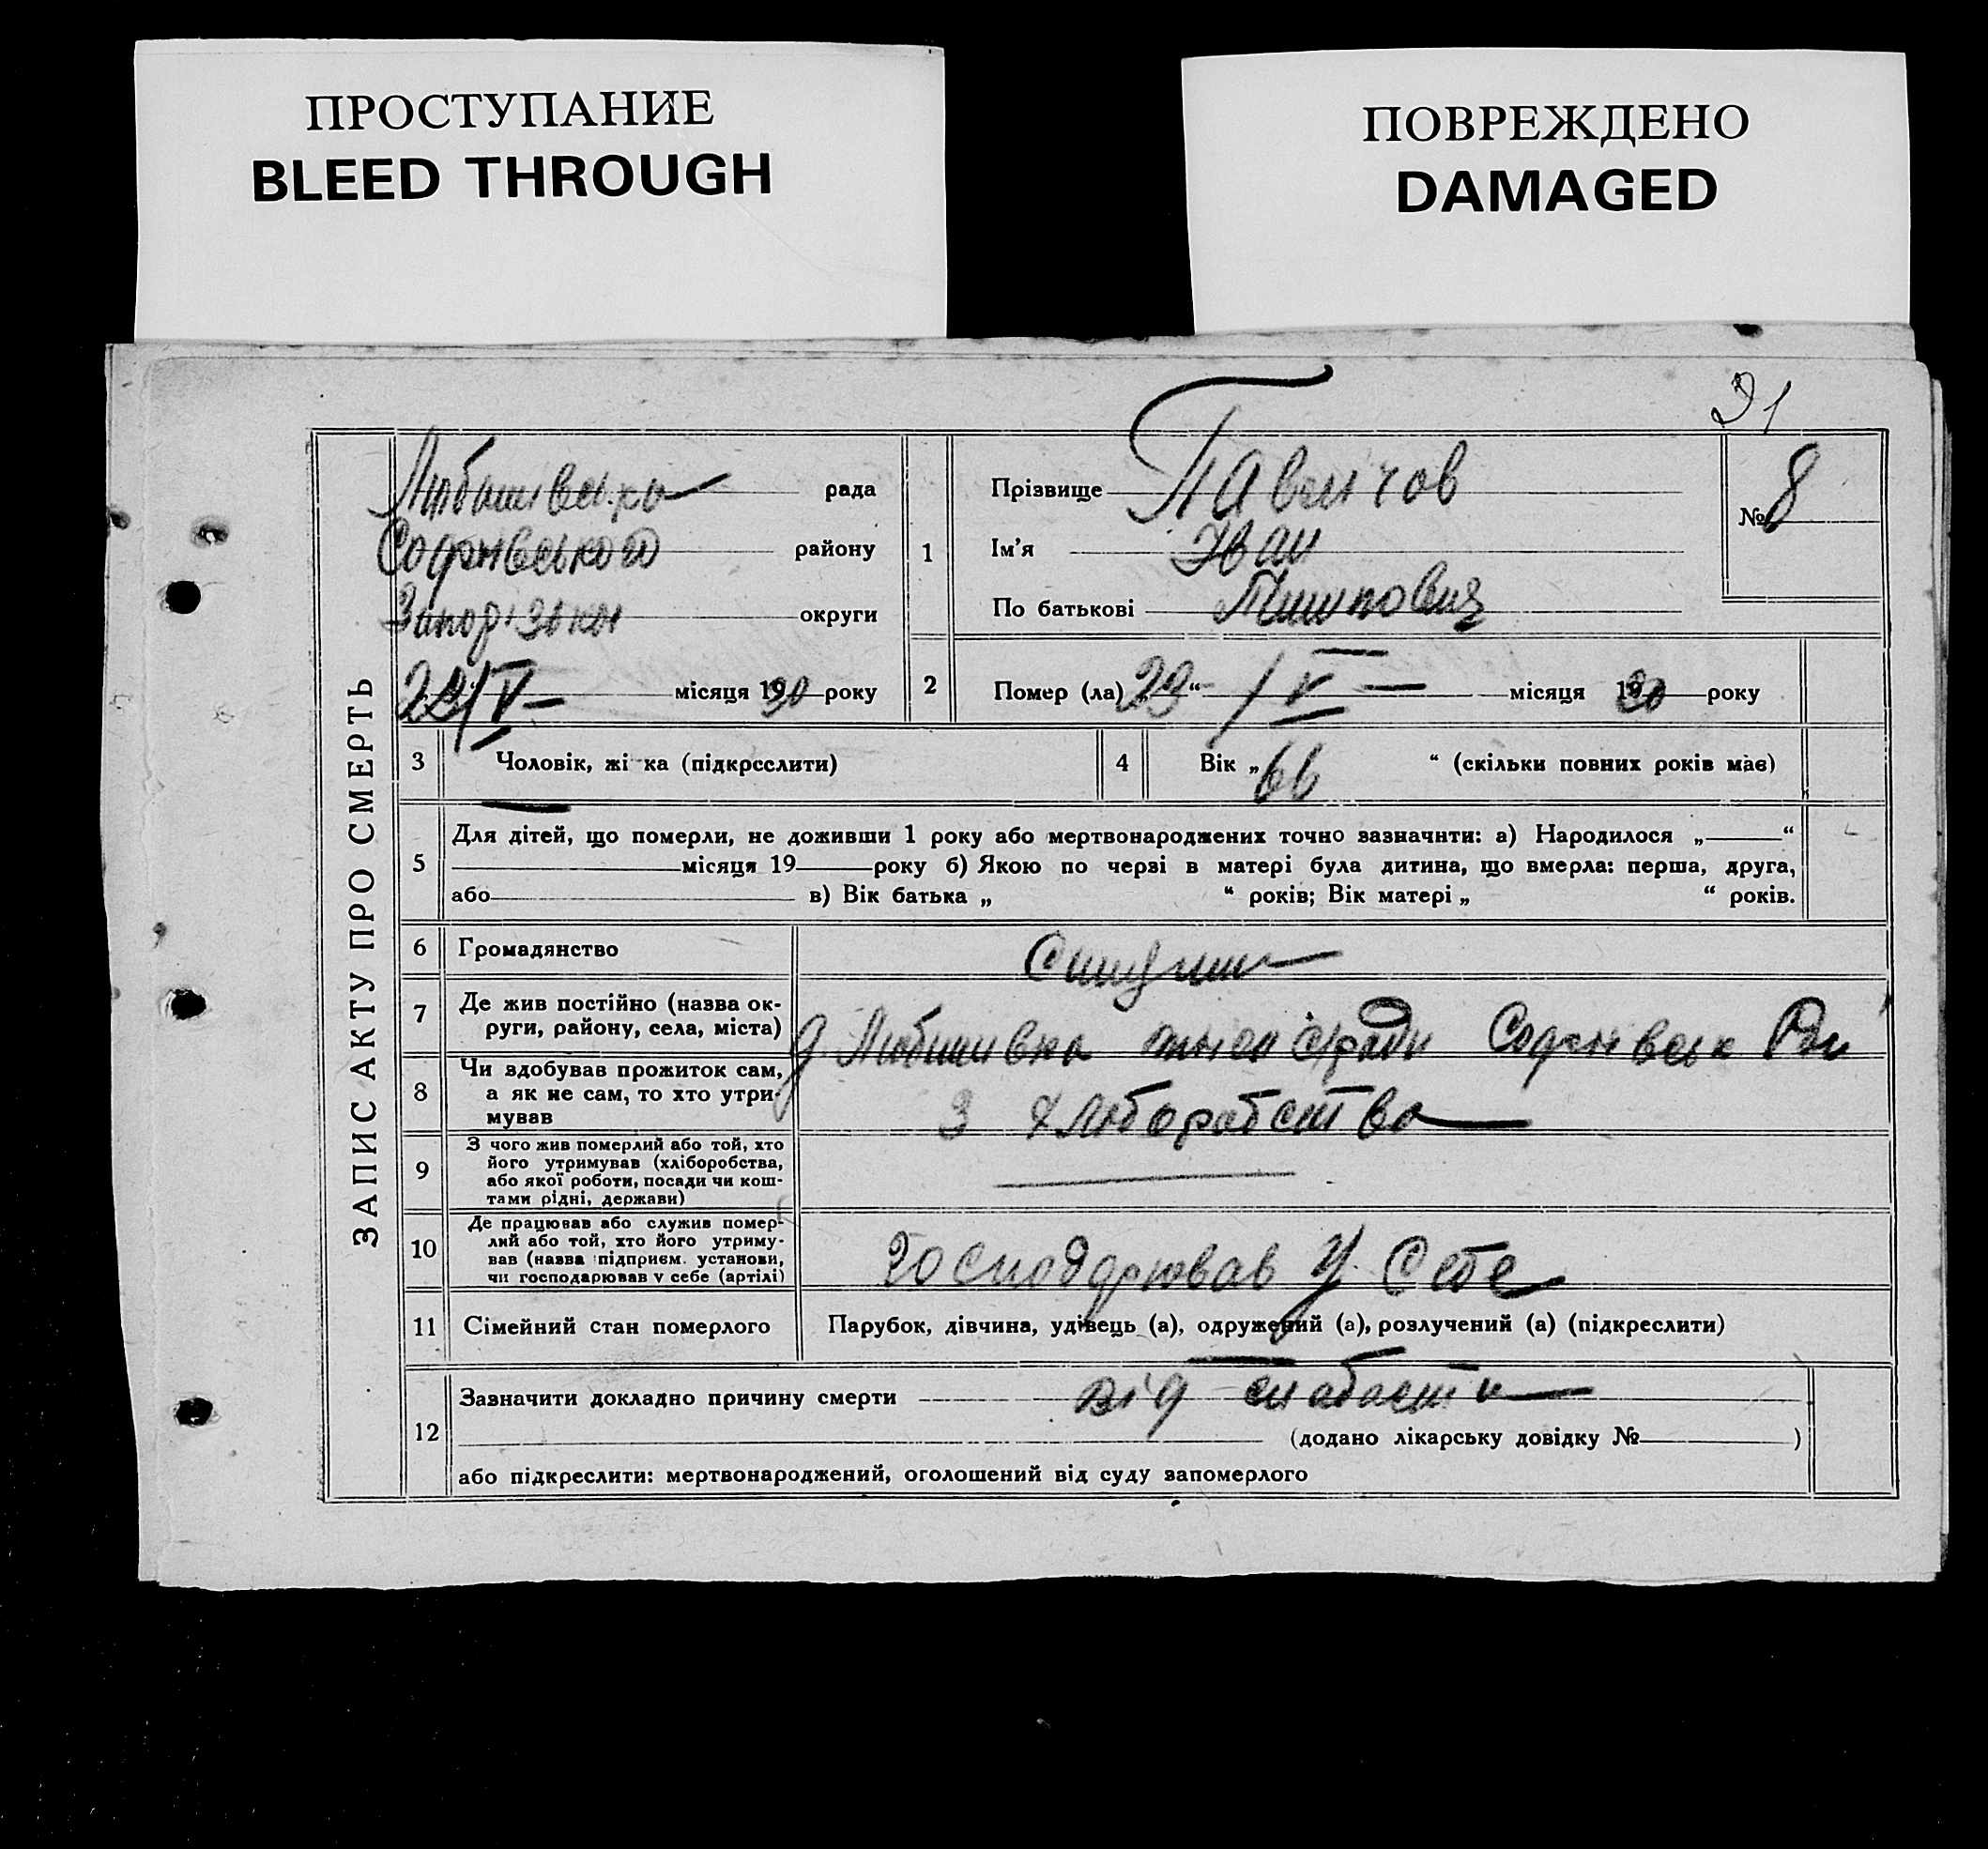 ПРОСТУПАНИЕ
BLEED THROUGH
ПОВРЕЖДЕНО
DAMAGED
91
ЗАПИС АКТУ ПРО СМЕРТЬ
рада
району
округи
22/V місяця 1930 року
1
Прізвище
Ім’я Іван
По батькові
№ 8
2
Помер (ла) / V місяця 1930 року
3 Чоловік, жі ка (підкреслити)
4 Вік „66“ (скільки повних років має)
5
Для дітей, що померли, не доживши 1 року або мертвонароджених точно зазначити: а) Народилося „ “
місяця 19 року б) Якою по черзі в матері була дитина, що вмерла: перша, друга,
або в) Вік батька „ “ років; Вік матері „ “ років.
6 Громадянство
7 Де жив постійно (назва ок-
руги, району, села, міста)
8 Чи здобував прожиток сам,
а як не сам, то хто утри-
мував
З хліборобства
9 З чого жив померлий або той, хто
його утримував (хліборобства,
або якої роботи, посади чи кош-
тами рідні, держави)
10 Де працював або служив помер-
лий або той, хто його утриму-
вав (назва підприєм. установи,
чи господарював у себе (артілі)
Господарював у Себе
11 Сімейний стан померлого Парубок, дівчина, удівець (а), одружений (а), розлучений (а) (підкреслити)
12 Зазначити докладно причину смерти від слабости
(додано лікарську довідку № )
або підкреслити: мертвонароджений, оголошений від суду запомерлого